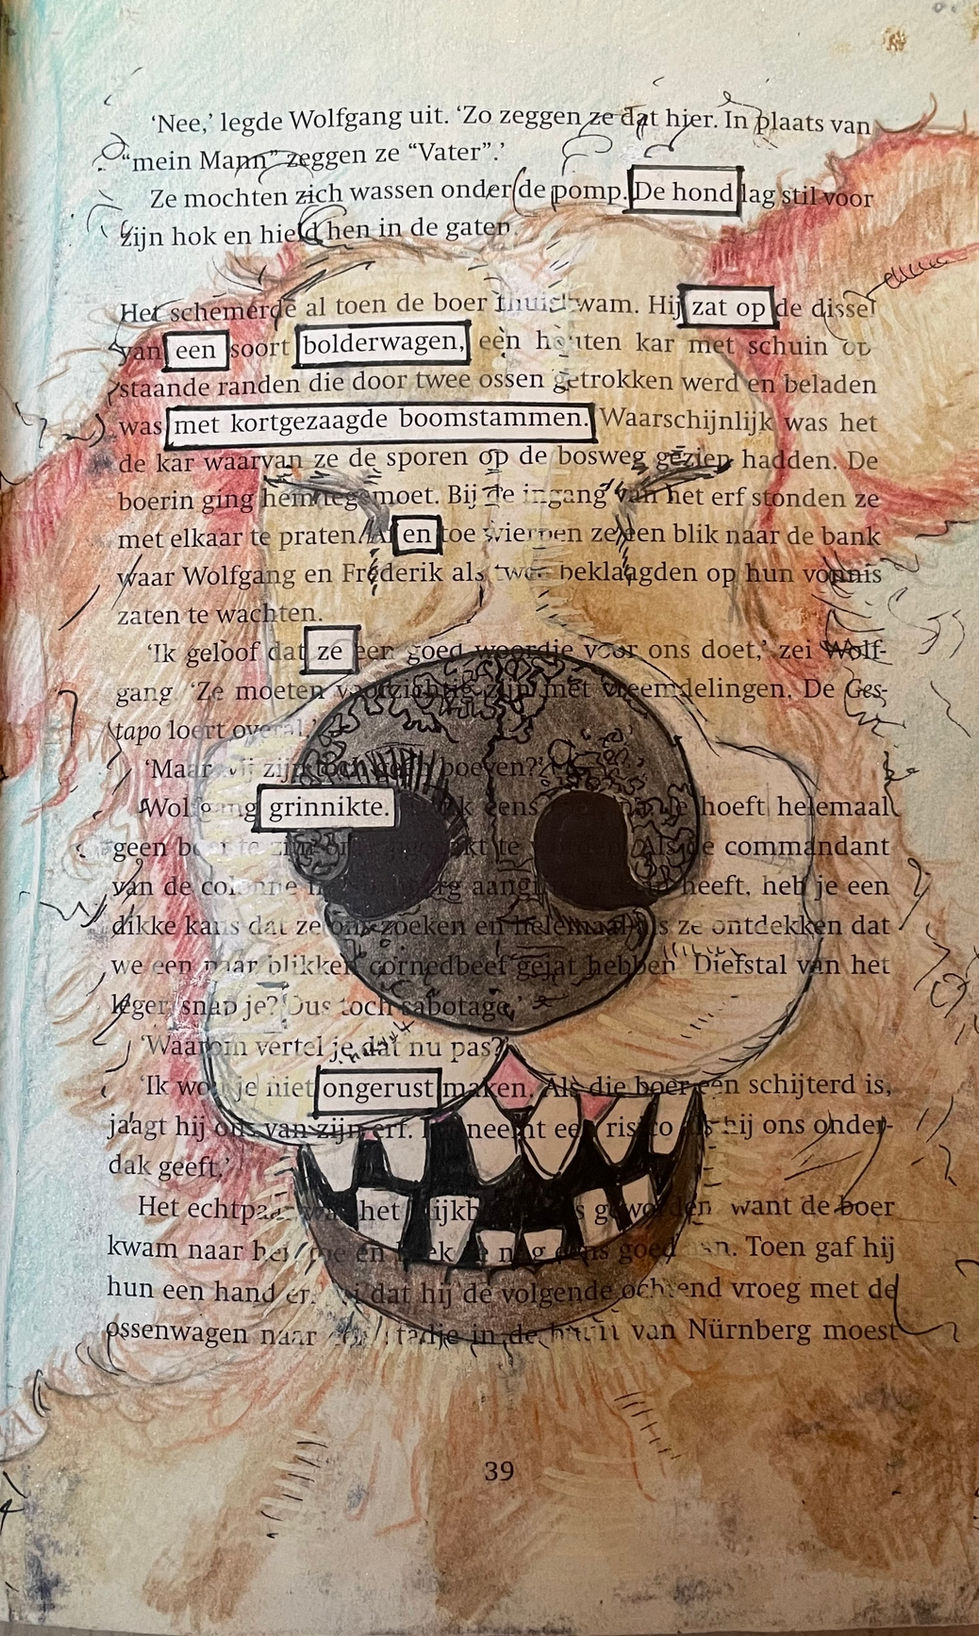 'Nee,' legde Wolfgang uit. 'Zo zeggen ze dat hier. In plaats van
"mein Mann" zeggen ze "Vater".'
Ze mochten zich wassen onder de pomp. De hond lag stil voor
zijn hok en hield hen in de gaten.
Het schemerde al toen de boer thuiskwam. Hij zat op de dissel
van een soort bolderwagen, een houten kar met schuin op
staande randen die door twee ossen getrokken werd en beladen
was met kortgezaagde boomstammen. Waarschijnlijk was het
de kar waarvan ze de sporen op de bosweg gezien hadden. De
boerin ging hem tegemoet. Bij de ingang van het erf stonden ze
met elkaar te praten. Af en toe wierpen ze een blik naar de bank
waar Wolfgang en Frederik als twee beklaagden op hun vonnis
zaten te wachten.
'Ik geloof dat ze een goed woordje voor ons doet,' zei Wolf-
gang 'Ze moeten voorzichtig zijn met vreemdelingen. De Ges-
tapo loert overal.'
'Maar wij zijn toch geen boeven?'
Wolfgang grinnikte. eens hoeft helemaal
geen te zijn te Als de commandant
van de colonne heeft, heb je een
dikke kans dat ze ons zoeken en helemaal als ze ontdekken dat
we een paar blikken cornedbeef gejat hebben Diefstal van het
leger, snap je? Dus toch sabotage.'
'Waarom vertel je dat nu pas?'
'Ik wou je niet ongerust maken. Als die boer een schijterd is,
jaagt hij ons van zijn erf. Hij neemt een risico als hij ons onder-
dak geeft.'
Het echtpaar was het blijkbaar eens geworden want de boer
kwam naar hen toe en keek ze nog eens goed aan. Toen gaf hij
hun een hand en zei dat hij de volgende ochtend vroeg met de
ossenwagen naar stadje in de buurt van Nürnberg moest
39